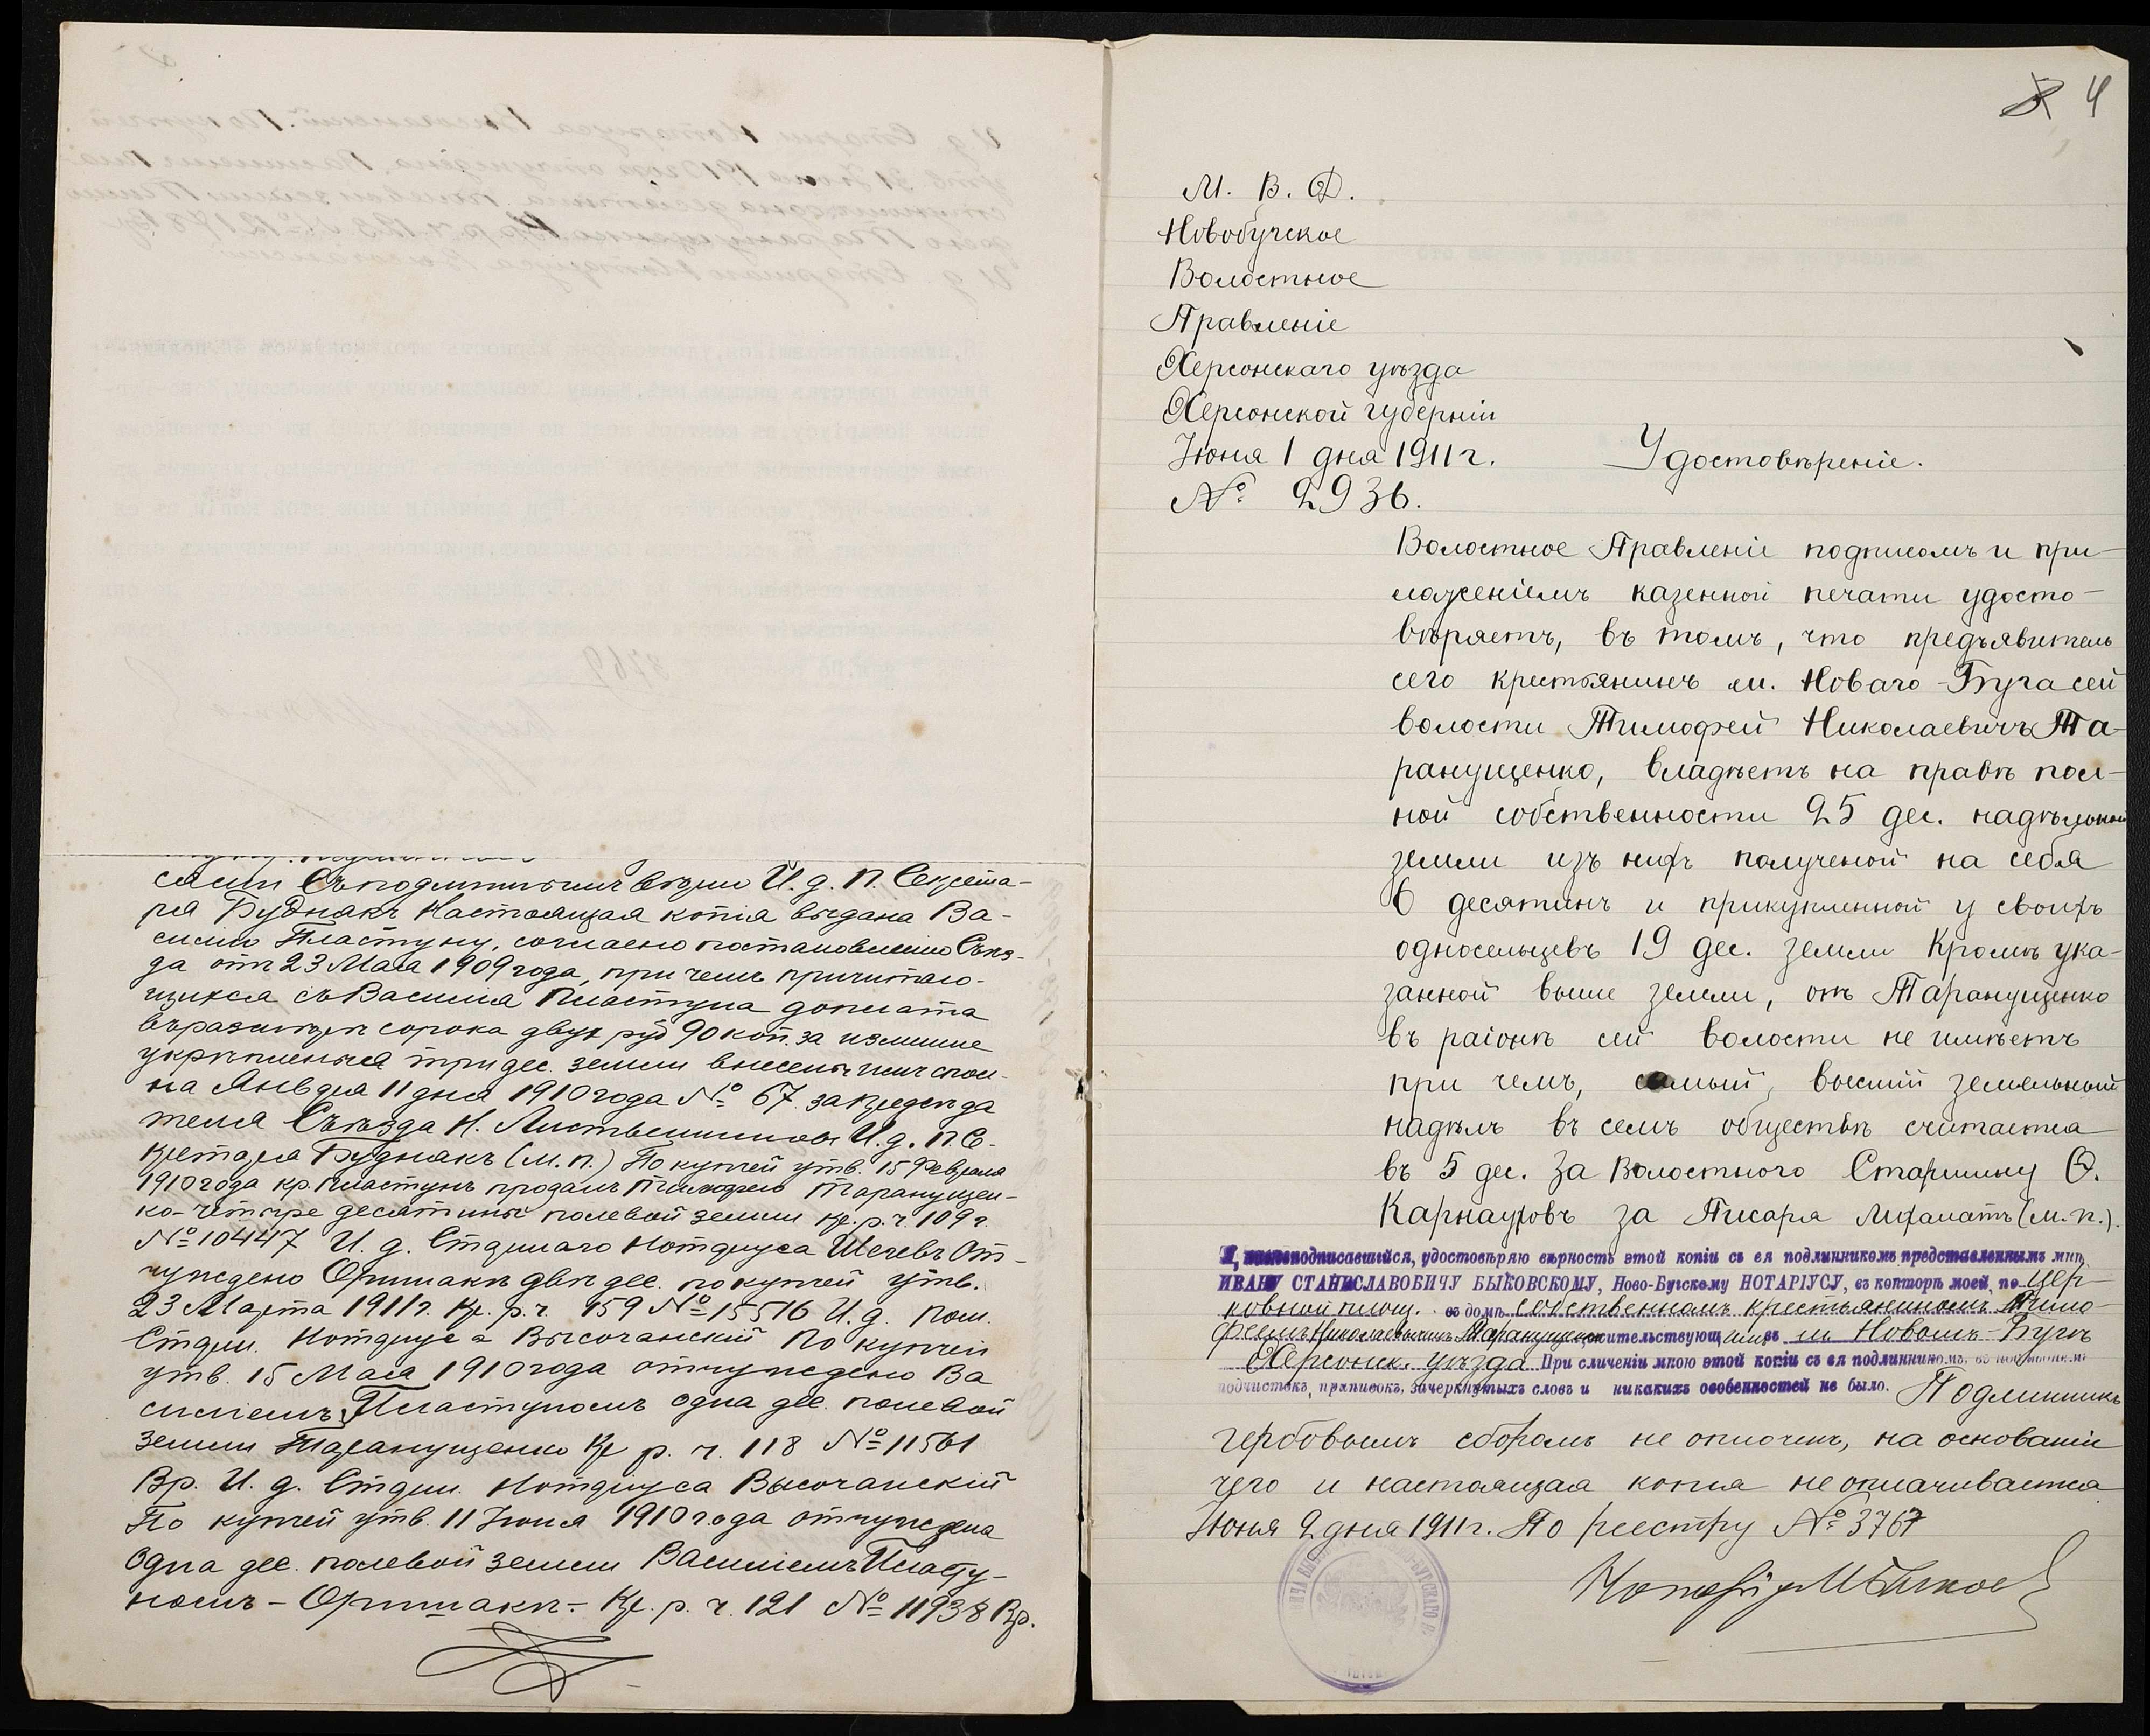 сясин Съ подлиннымъ вѣрно И. д. п. Секрета-
ря Буднякъ Настоящая копія выдана Ва-
силію Пластуну, согласно постановленію Съѣз-
да отъ 23 Мая 1909 года, при чемъ причитаю-
щаяся съ Василія Пластуна доплата
въ размѣрѣ сорока двухъ руб 90 коп. за излишне
укрѣпленныя три дес. земли внесены имъ спол-
на Января 11 дня 1910 года № 67. за Предсѣда
теля Съѣзда Н. Листвениновъ И. д. п. Се-
кретаря Буднякъ (М. п.) По купчей утв. 15 Февраля
1910 года кр. Пластунъ продалъ Тимофею Таранущен-
ко четыре десятины полевой земли кр. р. ч. 109 г.
№ 10447 И. д. Старшаго Нотаріуса Шечевъ От-
чуждено Оришакъ двѣ дес. по купчей утв.
23 Марта 1911 г. Кр. р. ч. 159 № 15516 И. д. пом.
Старш. Нотаріуса Высочанскій По купчей
утв. 15 Мая 1910 года отчуждено Ва
силіемъ Пластуномъ одна дес. полевой
земли Таранущенко Кр р. ч. 118 № 11561
Вр. И. д. Старш. Нотаріуса Высочанскій
По купчей утв. 11 Іюня 1910 года отчуждена
Одна дес. полевой земли Василіемъ Пласту-
номъ - Оришакъ - Кр. р. ч. 121 № 11938 Вр.
4
М. В. Д.
Новобугское
Волостное
Правленіе
Херсонскаго уѣзда
Херсонской губерніи
Іюня 1 дня 1911 г.
Удостовѣреніе.
№ 2936.
Волостное Правленіе подписомъ и при-
ложеніемъ казенной печати удосто-
вѣряетъ, въ томъ, что предъявитель
сего крестьянинъ м. Новаго-Буга сей
волости Тимофей Николаевичъ Та-
ранущенко, владѣетъ на правѣ пол-
ной собственности 25 дес. надѣльной
земли изъ нихъ полученой на себя
6 десятинъ и прикупленной у своихъ
односельцевъ 19 дес. земли Кромѣ ука-
занной выше земли, онъ Таранущенко
въ раіонѣ сей волости не имѣетъ
при чемъ, самый, высшій земельный
надѣлъ въ семъ обществѣ считается
въ 5 дес. За Волостного Старшину Ѳ.
Карнауховъ за Писаря Лихаматъ (м. п.).
Я, нижеподписавшійся, удостовѣряю вѣрность этой копіи съ ея подлинникомъ представленнымъ мнѣ,
ИВАНУ СТАНИСЛАВОВИЧУ БЫКОВСКОМУ, Ново-Бугскому НОТАРІУСУ, въ конторѣ моей, по Цер-
ковной площ. въ домѣ собственномъ крестьяниномъ Тимо-
феемъ Николаевичемъ Таранущенко жительствующимъ въ м. Новомъ-Бугѣ
Херсонск. уѣзда При сличеніи мною этой копіи съ ея подлинникомъ, въ подлинникѣ
подчистокъ, приписокъ, зачеркнутыхъ словъ и никакихъ особенностей не было. Подлинникъ
гербовымъ сборомъ не оплочен, на основаніи
чего и настоящая копія не оплачивается
Іюня 2 дня 1911 г. По реестру № 3767
Нотаріусъ И Быков